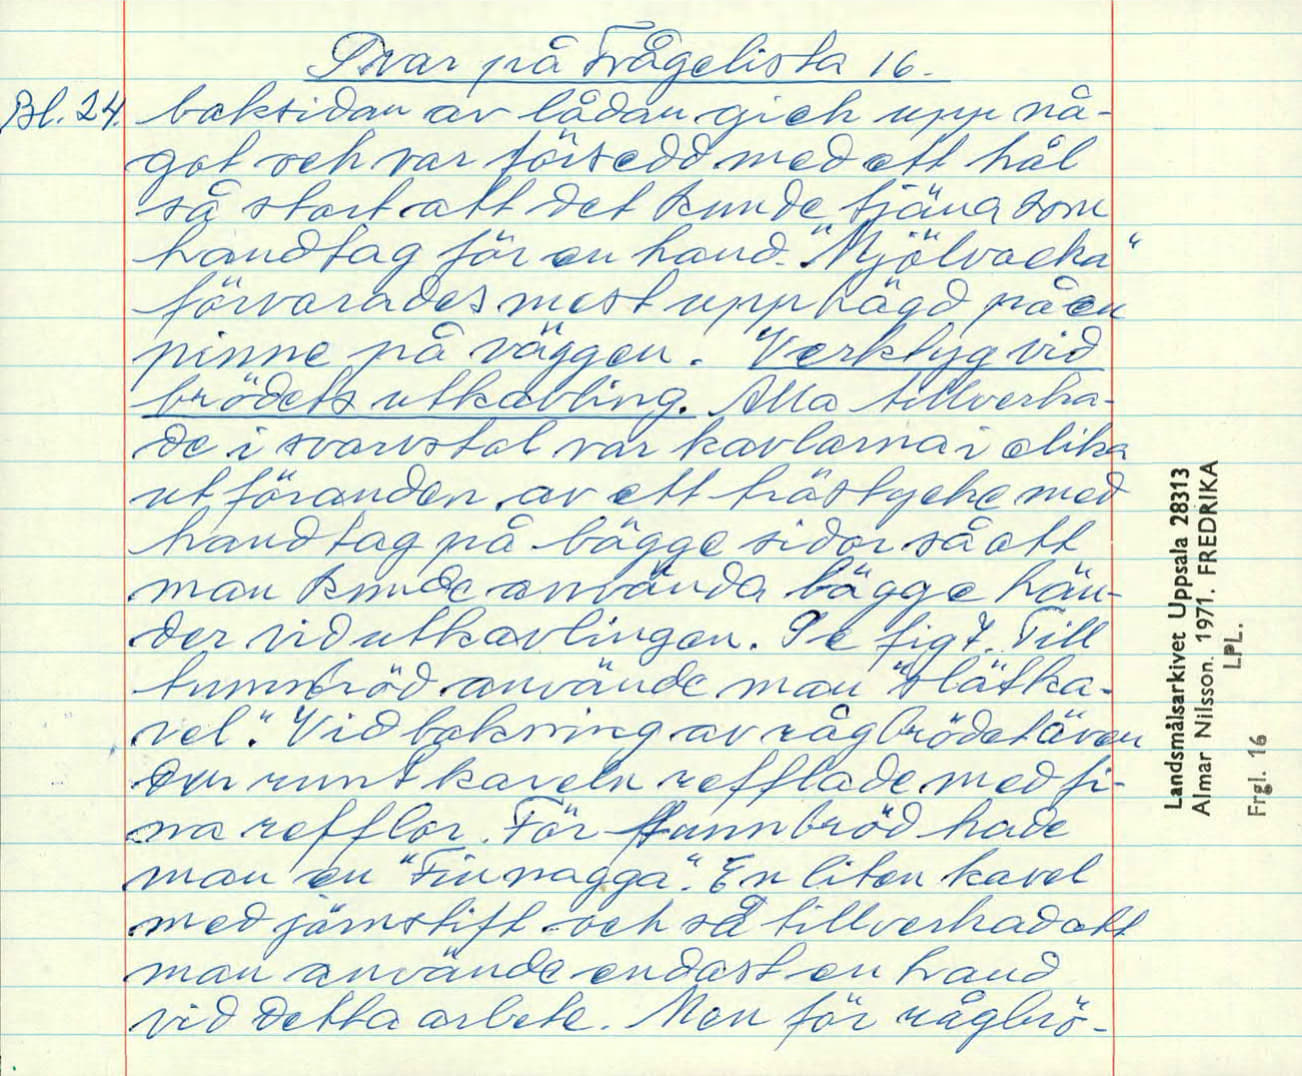 Svar på Frågelista 16.
Bl. 24. baksidan av lådan gick upp nå-
got och var försedd med ett hål
så stort att det kunde tjäna som
handtag för en hand. "Mjölvacka"
förvarades mest upphägd på en
pinne på väggen. Verktyg vid
brödets utkavling. Alla tillverka-
de i svarvstol var kavlarna i olika
utföranden av ett trästycke med
handtag på bägge sidor så att
man kunde använda bägge hän-
der vid utkavlingen. Se fig 7. Till
tunnbröd använde man "slätka-
vel". Vid bakning av rågbrödet även
den runt kaveln refflade med fi-
na refflor. För tunnbröd hade
man en "Finnagga". En liten kavel
med järnstift och så tillverkad att
man använde endast en hand
vid detta arbete. Men för rågbrö-
Landsmålsarkivet Uppsala 28313
Almar Nilsson. 1971. FREDRIKA
LPL.
Frgl. 16